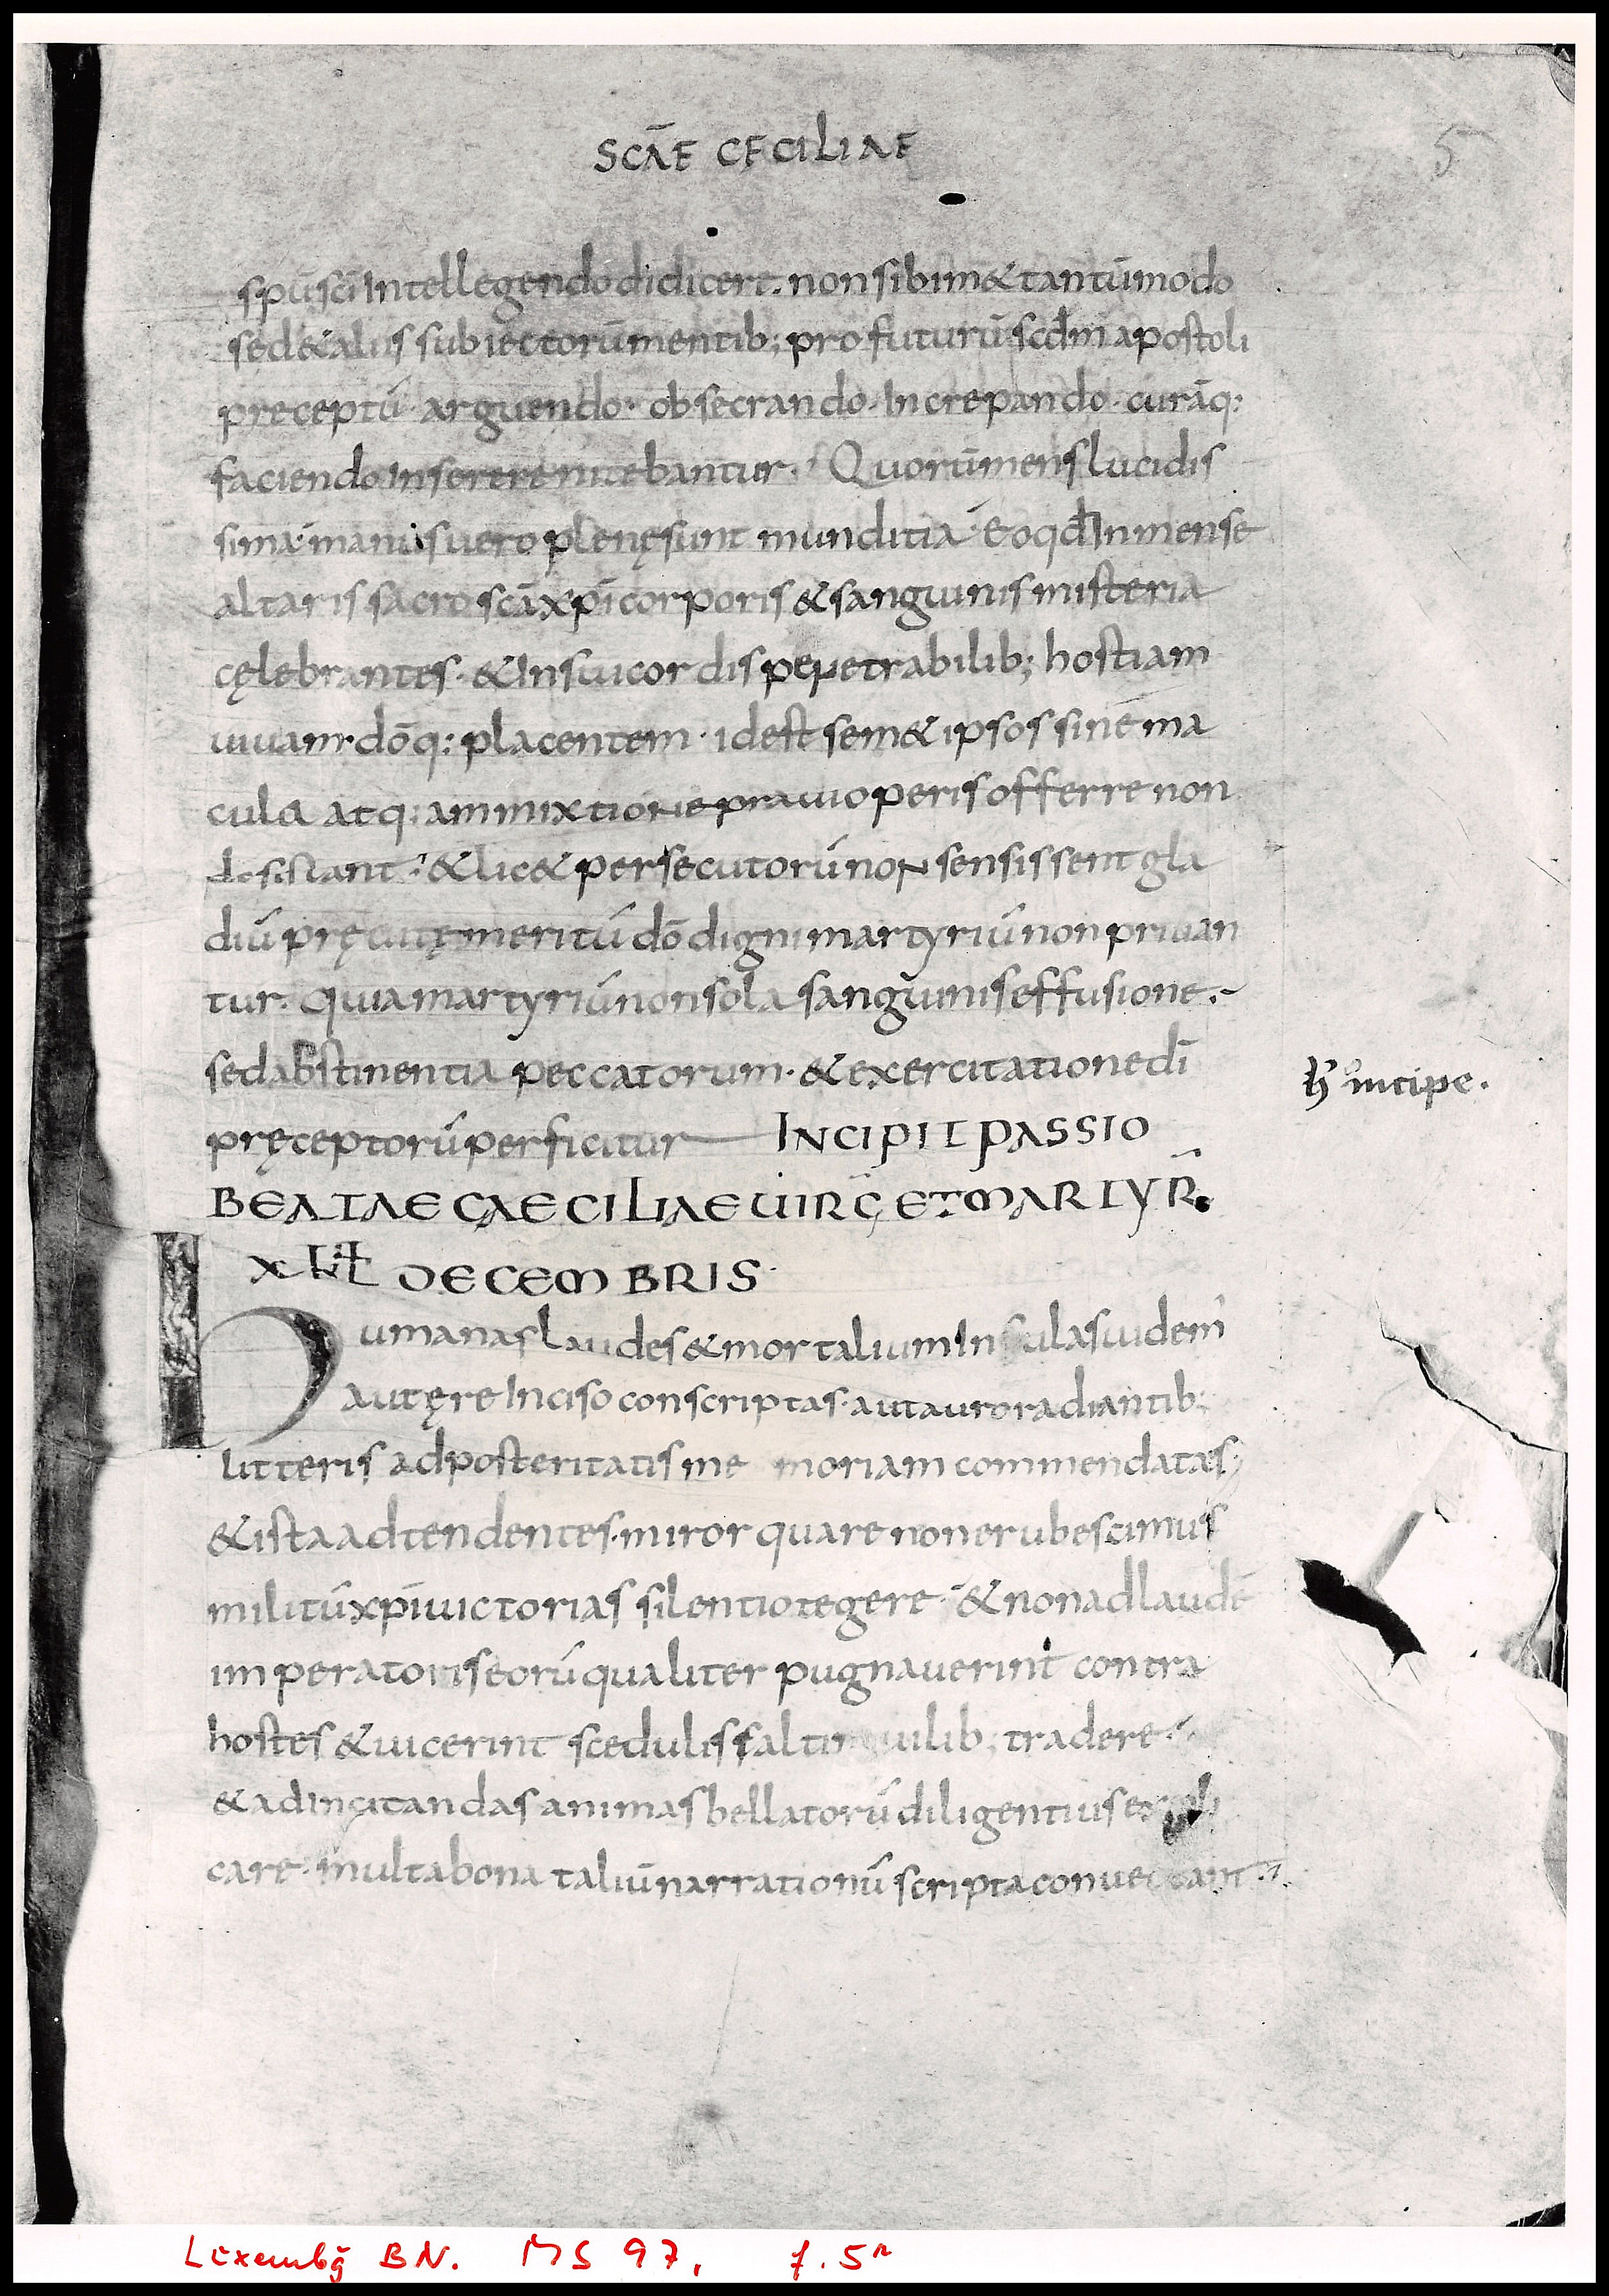 SCĀE CĘCILIAE
5
spūscī Intellegendo didicert. non sibim& tantūmodo
sed & aliis subiectorū mentib; pro futurū scdm apostoli
preceptū · arguendo · obsecrando · Increpando · curāq:
faciendo Inserere nitebantur. Quorū mens lucidis
sima · manus uero plenę sunt munditia · Eoqd In mense
altaris sacro scā xpī corporis & sanguinis misteria
cęlebrantes · & In sui cordis penetrabilib; hostiam
uiuam dōq: placentem · id est sem& ipsos sine ma
cula atq; ammixtione praui operis offerre non
desistant · & lic& persecutorū non sensissent gla
diū pręcutę meritū dō digni martyriū non priuan
tur. Quia martyriū non sola sanguinis effusione.
sed abstinentia peccatorum · & exercitatione dī
h̄ incipe.
pręceptorū perficitur INCIPIT PASSIO
BEATAE CAECILIAE UIRG̅ ET MARTYR̅.
x kł DECEMBRIS
Humanas laudes & mortalium In
aut ęre Inciso conscriptas · aut auro radiantib;
litteris ad posteritatis me moriam commendatas;
& ista adtendentes · miror quare non erubescimus
militū xpī uictorias silentio tegere · & non ad laudē
imperatoris eorū qualiter pugnauerint contra
hostes & uicerint scedulis uilib; tradere ·
& ad incitandas animas bellatorū diligentius expli
care · multa bona taliū narrationū scripta conuectant
Luxembg BN. MS 97, f. 5r